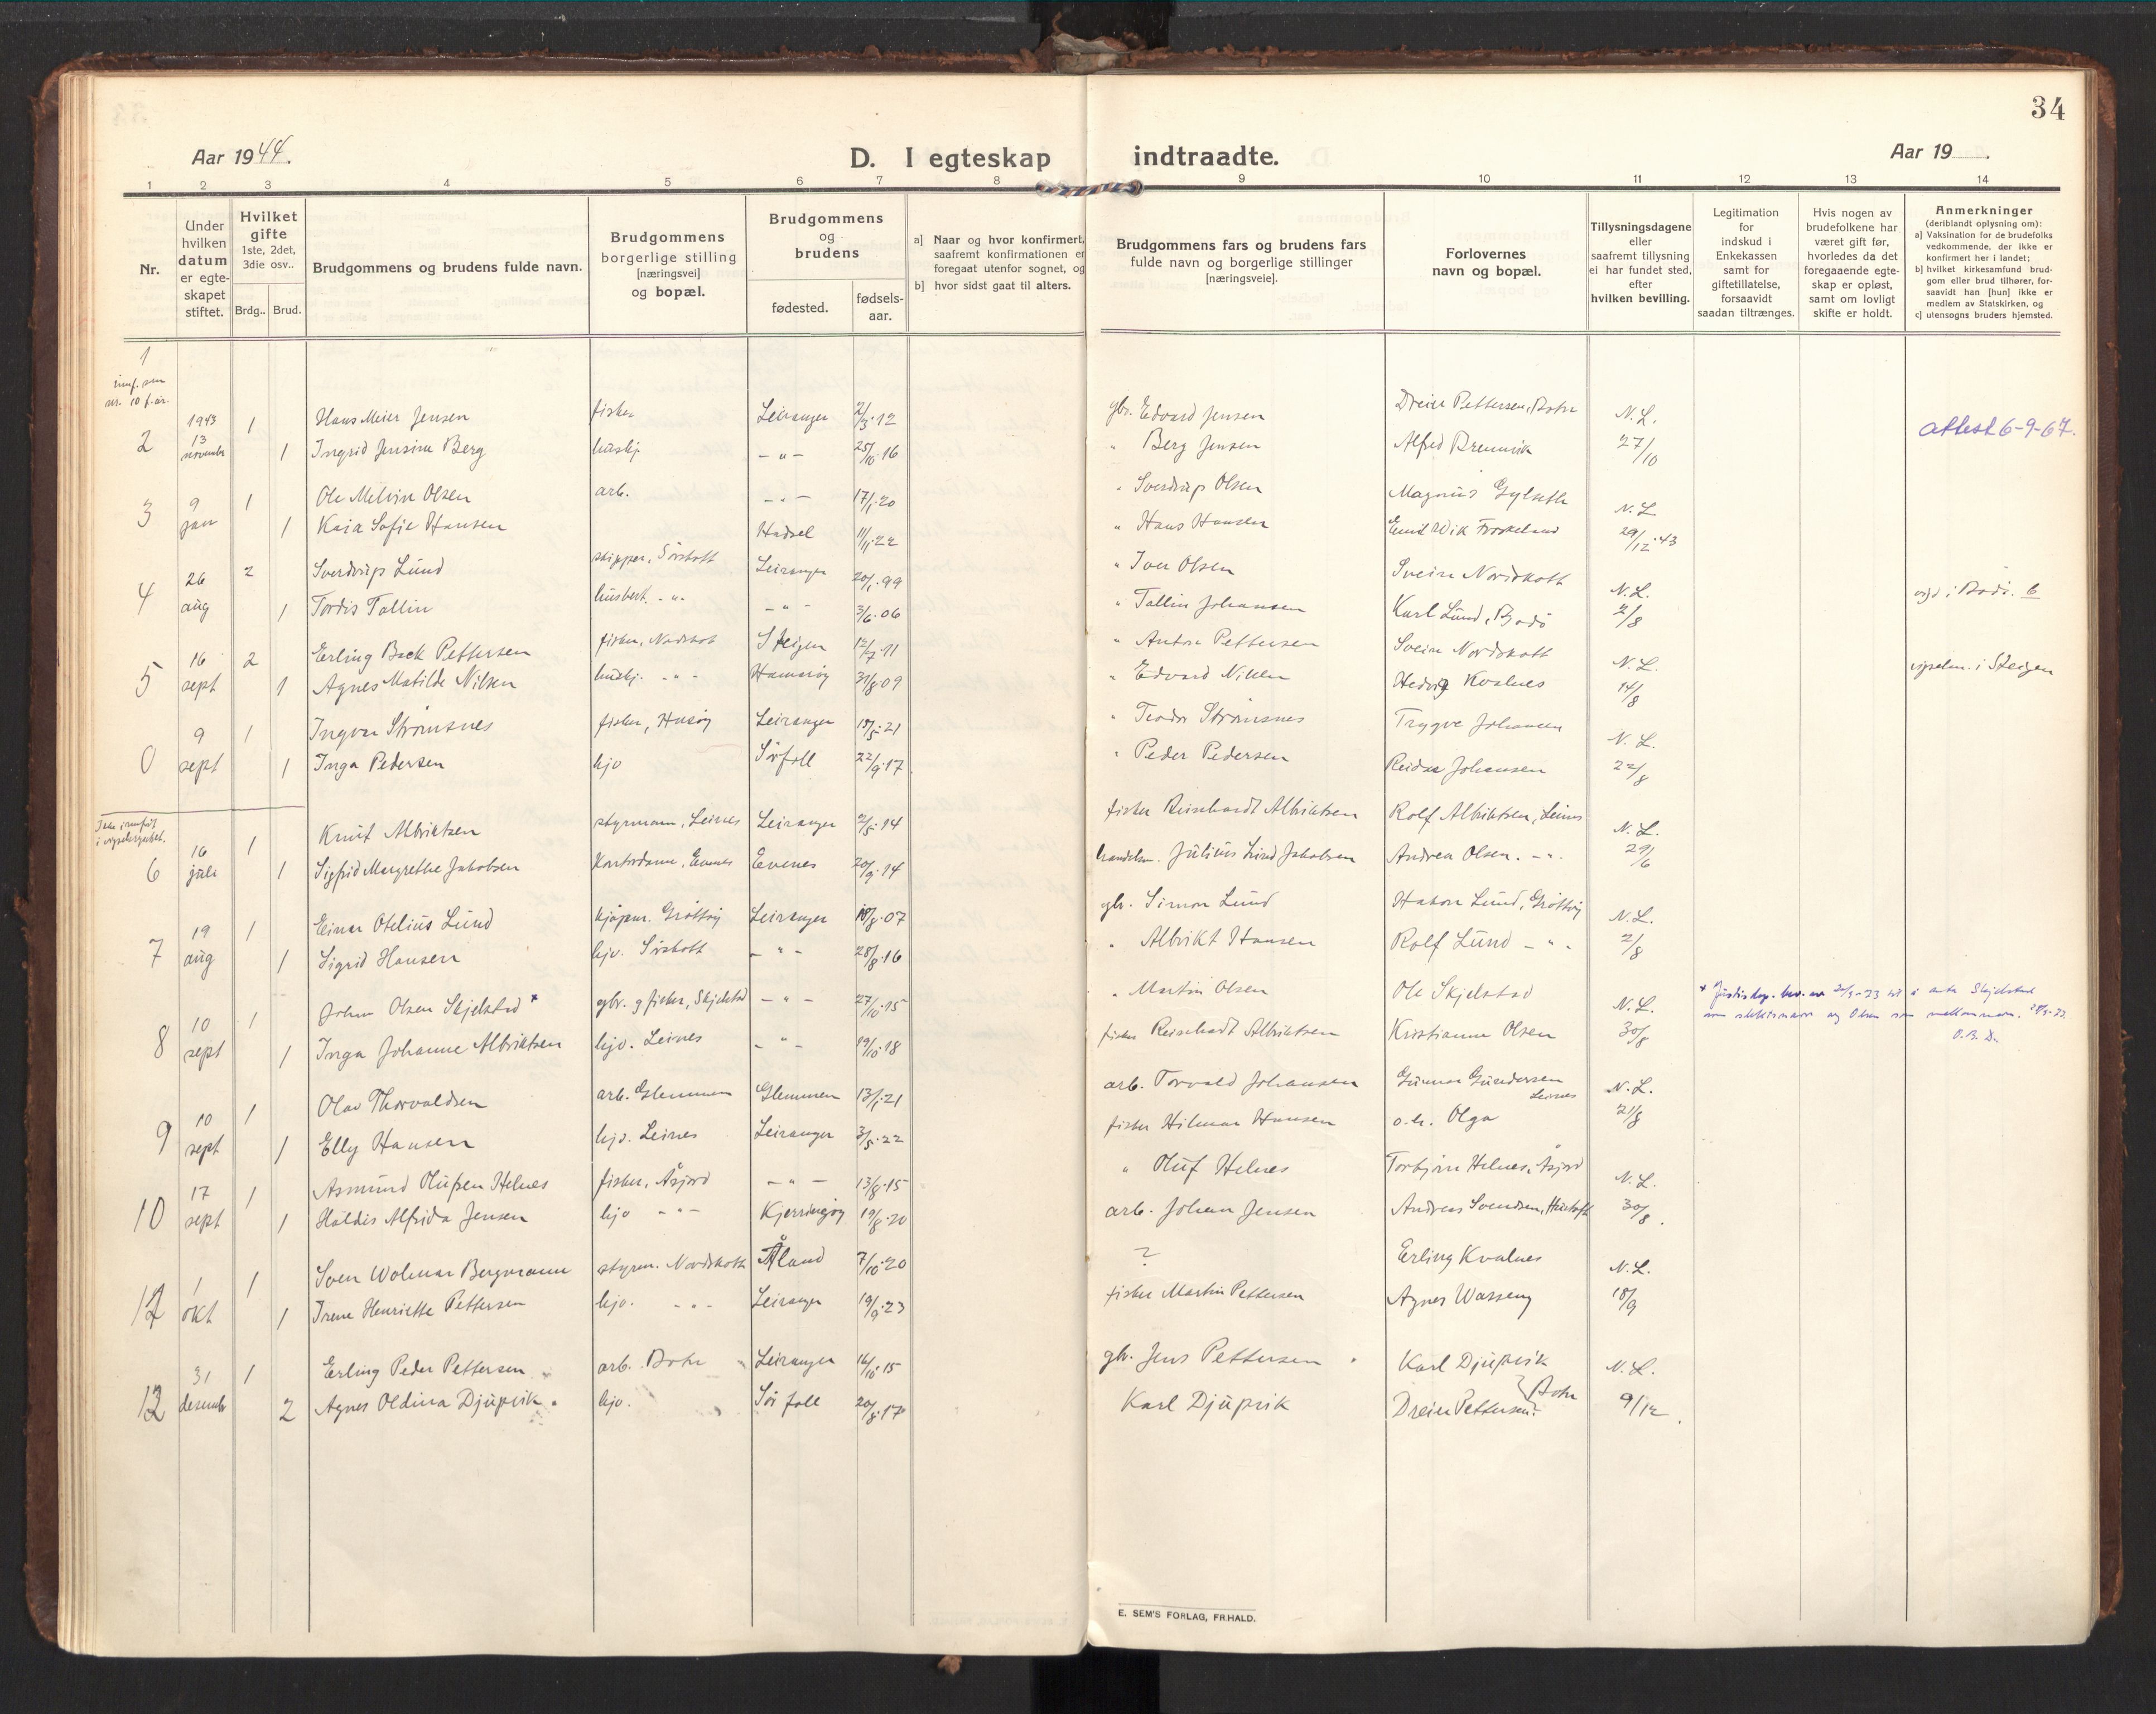 34
Aar 1944.
D. I egteskap indtraadte.
Aar 19   .
1 2 3 4 5 6 7 8 9 10 11 12 13 14
Nr.
Under hvilken datum er egte-skapet stiftet.
Hvilket gifte
1ste, 2det, 3die osv..
Brdg.. Brud.
Brudgommens og brudens fulde navn.
Brudgommens borgerlige stilling [næringsvei] og bopæl.
Brudgommens og brudens
fødested.
fødsels-aar.
a] Naar og hvor konfirmert, saafremt konfirmationen er foregaat utenfor sognet, og
b] hvor sidst gaat til alters.
Brudgommens fars og brudens fars fulde navn og borgerlige stillinger [næringsveie].
Forlovernes navn og bopæl.
Tillysningsdagene eller saafremt tillysning ei har fundet sted, efter hvilken bevilling.
Legitimation for indskud i Enkekassen samt for giftetillatelse, forsaavidt saadan tiltrænges.
Hvis nogen av brudefolkene har været gift før, hvorledes da det foregaaende egte-skap er opløst, samt om lovligt skifte er holdt.
Anmerkninger
(deriblandt oplysning om):
a] Vaksination for de brudefolks vedkommende, der ikke er konfirmert her i landet;
b] hvilket kirkesamfund brud-gom eller brud tilhører, for-saavidt han [hun] ikke er medlem av Statskirken, og
c] utensogns bruders hjemsted.
1
innf. som
nr. 10 f. år.
1943 1 Hans Meier Jensen fisker Leiranger 2/3·12 gbr. Edvard Jensen Dreier Pettersen, Botn N.L.
2 13 november 1 Ingrid Jensine Berg huskj. –"– 25/10·16 " Berg Jensen Alfred Bremvik 27/10 attest 6-9-67.
9 1 Ole Melvin Olsen arb. –"– 17/1·20 " Sverdrup Olsen Magnus Gylseth N.L
3 jan 1 Kaia Sofie Hansen Hadsel 11/11·22 " Hans Hansen Emil Wik Forskeland 29/12·43
26 2 Sverdrup Lund skipper, Sørskott Leiranger 20/1·99 " Iver Olsen Svein Nordskott N.L.
4 aug 1 Tordis Tollin husbest. -"- –"– 3/6·06 " Tollin Johansen Karl Lund, Bodø 2/8 vigd i Bodø. 6
16 2 Erling Bock Pettersen fisker, Nordskot Steigen 12/7·11 " Anton Pettersen Svein Nordskott N.L.
5 sept 1 Agnes Matilde Nilsen huskj. -"- Hamarøy 31/8·09 " Edvard Nilsen Hedvig Kvalnes 14/8 vigselen. i Steigen
9 1 Ingvar Strømsnes fisker, Husøy Leiranger 15/5·21 " Teodor Strømsnes Trygve Johansen N.L.
0 sept 1 Inga Pedersen hjv Sørfoll 22/9·17 " Peder Pedersen Reidar Johansen 22/8
Ikke innført
i vigselsprotok.
16 1 Knut Albriktsen styrmann, Leines Leiranger 2/5·14 fisker Reinhardt Albriktsen Rolf Albriktsen, Leines N.L.
6 juli 1 Sigfrid Margrethe Jakobsen Kontordame, Evenes Evenes 20/9·14 handelsm. Julius Lind Jakobsen Andrea Olsen. -"- 29/6
19 1 Einar Otelius Lund kjøpm. Grøttøy Leiranger 18/8·07 gbr. Simon Lund Hakon Lund, Grøttøy N.L.
7 aug 1 Sigrid Hansen hjv. Sørskott –"– 28/8·16 " Albrikt Hansen Rolf Lund –"– 2/8
10 1 Johan Olsen Skjelstad* gbr. og fisker, Skjelstad –"– 27/10·15 " Martin Olsen Ole Skjelstad N.L.
8 sept 1 Inga Johanne Albriktsen hjv. Leines –"– 19/10·18 fisker Reinhardt Albriktsen Kristianne Olsen 30/8
som slektsnavn og Olsen som mellomnavn.
O.B.D.
10 1 Olav Thorvaldsen arb. Glemmen Glemmen 13/1·21 arb. Torvald Johansen Gunnar Gundersen Leines N.L.
9 sept 1 Elly Hansen hjv. Leines Leiranger 3/5·22 fisker Hilmar Hansen o.h. Olga 21/8
17 1 Asmund Olufsen Helnes fisker, Åsjord –"– 13/8·15 " Oluf Helnes Torbjørn Helnes, Åsjord N.L.
10 sept 1 Haldis Alfrida Jensen hjv -"- Kjerringøy 19/8·20 arb. Johan Jensen Andreas Svendsen, 30/8.
1 1 Sven Wolmar Bergmann styrm. Nordskott Åland 7/10·20 ? Erling Kvalnes N.L.
12 okt 1 Irene Henriette Pettersen hjv. -"- Leiranger 19/9·23 fisker Martin Pettersen Agnes Wasseng 18/9
31 1 Erling Peder Pettersen arb. Botn Leiranger 16/10·15 gbr. Jens Pettersen Karl Djupvik N.L.
13 desember 2 Agnes Oldina Djupvik. hjv. Sørfoll 20/8·17 Karl Djupvik Dreier Pettersen Botn 9/12.
E. SEM'S FORLAG, FR.HALD.